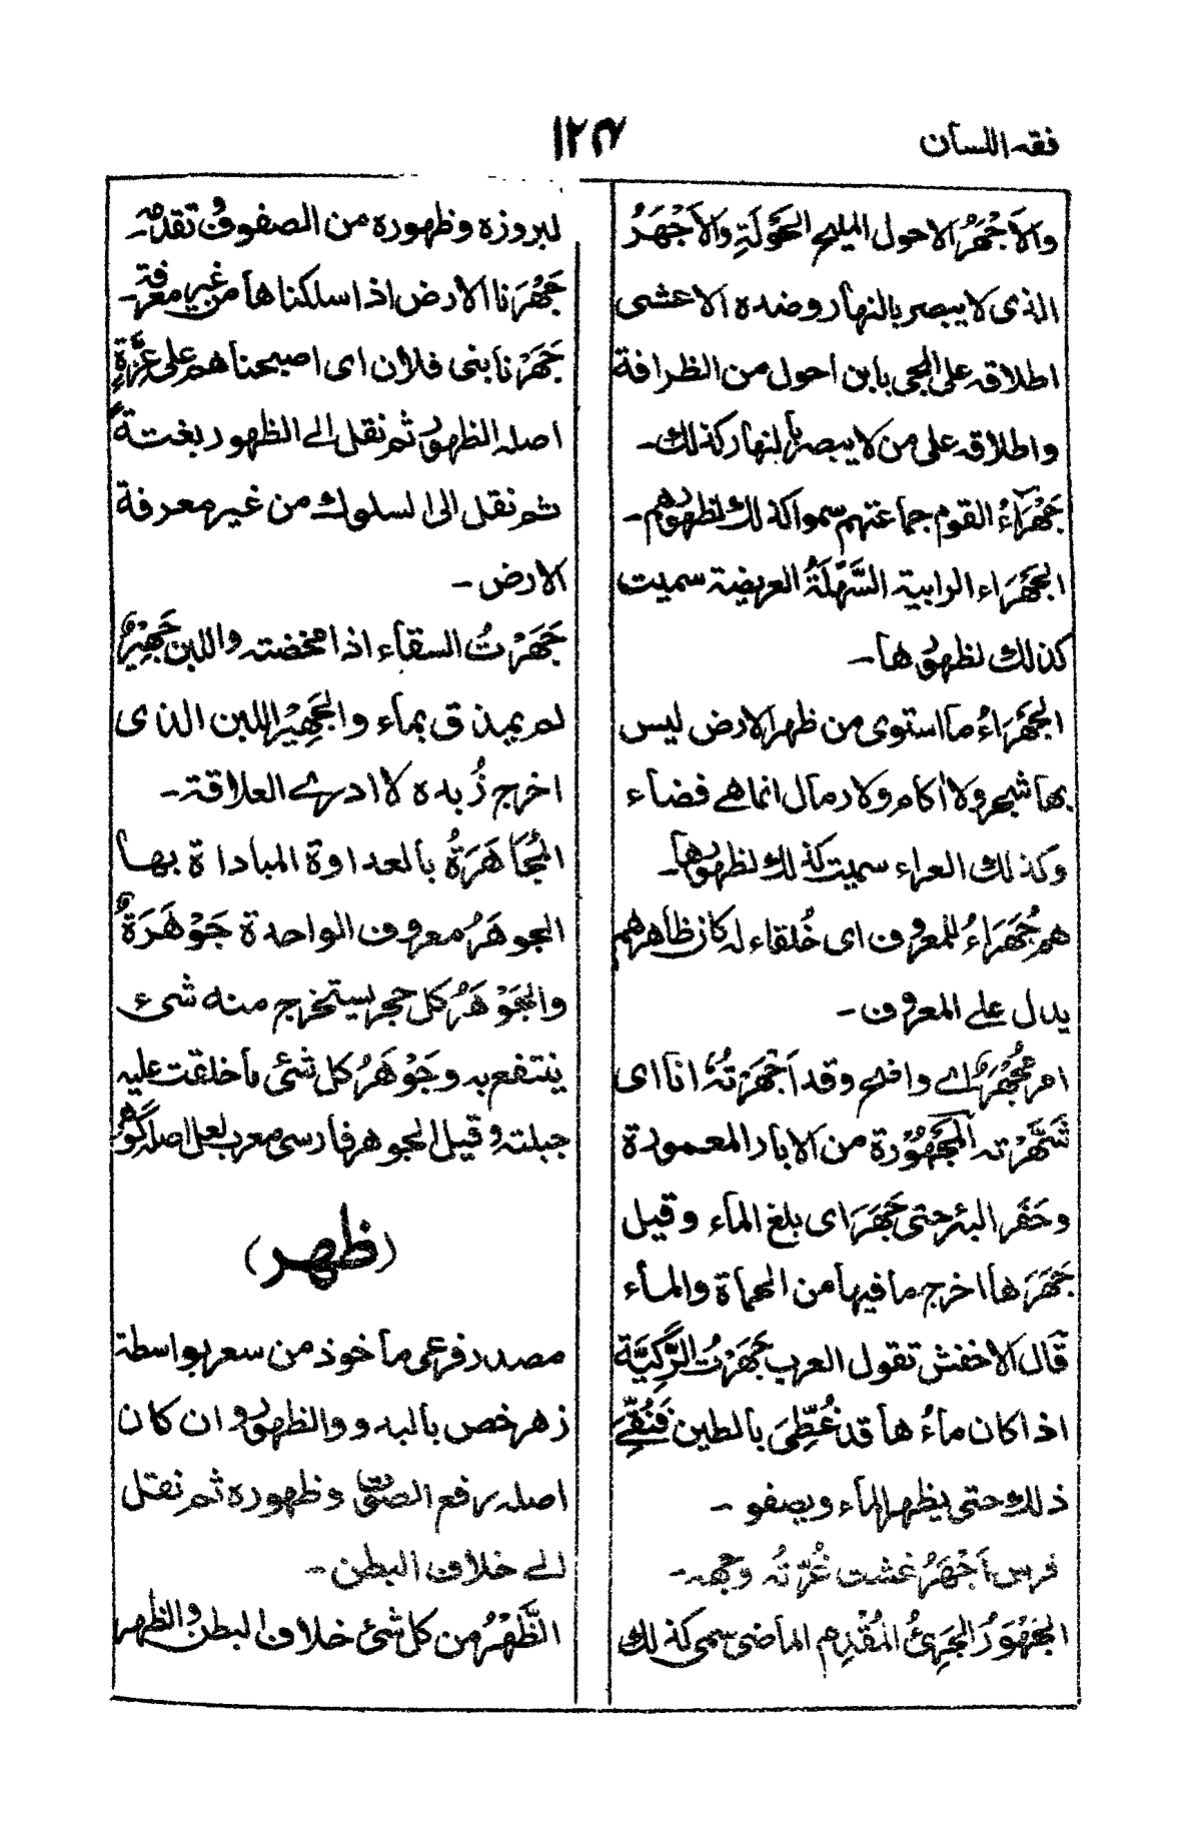 فقه اللسان
١٢٧
والأَجْهَرُ الاحول المليح الحَوْلَةِ والأَجْهَرُ
الذى لا يبصر بالنهار وضده الاعشى
اطلاقه على المجى بابن احول من الظرافة
واطلاقه على من لا يبصر بالنهار كذلك-
جَهْرَاءُ القوم جماعتهم سموا كذلك لظهورهم-
الجَهْرَاء الرابية السَّهْلَةُ العريضة سميت
كذلك لظهورها-
الجَهْرَاءُ ما استوى من ظهر الارض ليس
بها شجر ولا اكام ولا رمال انما هى فضاء
وكذلك العراء سميت كذلك لظهورها-
هم جُهَرَاءُ للمعروف اى خُلقاء له كان ظاهرهم
يدل على المعروف-
امر مُجْهَرٌ اے واضح وقد اَجْهَرْتُهُ انا اى
شَهَّرْته المَجْهُوْرَة من الابار المعمورة
وحَفَر البئر حتى جَهَرَ اى بلغ الماء وقيل
جَهَرَها اخرج ما فيها من الحمأة والماء
قال الاخفش تقول العرب جَهَرْتُ الرَّكِيَّةَ
اذا كان ماءُ ها قد غُطِّىَ بالطين فَنُقِّىَ
ذلك حتى يظهر الماء ويصفو-
فرس اَجْهَرُ غشت غُرّتُه وجهه-
الجَهْوَرُ الجَرِئُ المُقْدِم الماضى سمى كذلك
لبروزه وظهوره من الصفوف وتقدمه-
جَهَرْنا الارض اذا سلكناها من غير معرفة-
جَهَرْنا بنى فلان اى اصبحناهم على غِرَّةٍ
اصله الظهور ثم نقل الى الظهور بغتة
ثم نقل الى السلوك من غير معرفة
الارض-
جَهَرْتُ السقاء اذا مخضته واللبن جَهِيْرٌ
لم يمذق بماء والجَهِيْرُ اللبن الذى
اخرج زُبده لا ادرى العلاقة-
المُجَاهَرَةُ بالعداوة المباداة بها
الجوهَرُ معروف الواحدة جَوْهَرَةٌ
والجَوْهَرُ كل حجر يستخرج منه شىء
ينتفع به وجَوْهَرُ كل شئى ما خلقت عليه
جبلته وقيل الجوهر فارسى معرب لعل اصله گوهر
(ظهر)
مصدر فرعى ماخوذ من سعر بواسطة
زهر خص بالبدو والظهور وان كان
اصله رفع الصوت وظهوره ثم نقل
الے خلاف البطن-
الظَّهْرُ من كل شئ خلاف البطن والظهر